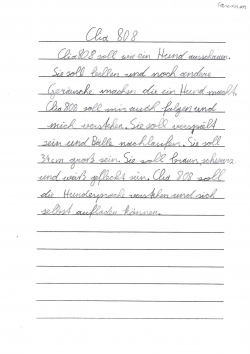 Clia 808
Clia 808 soll wie ein Hund ausschauen.
Sie soll bellen und noch andere
Geräusche machen die ein Hund macht.
Clia 808 soll mir auch folgen und
mich verstehen. Sie soll verspielt
sein und Bälle nachlaufen. Sie soll
34 cm groß sein. Sie soll braun, schwarz
und weiß gefleckt sein. Clia 808 soll
die Hundesprache verstehen und sich
selbst aufladen können.